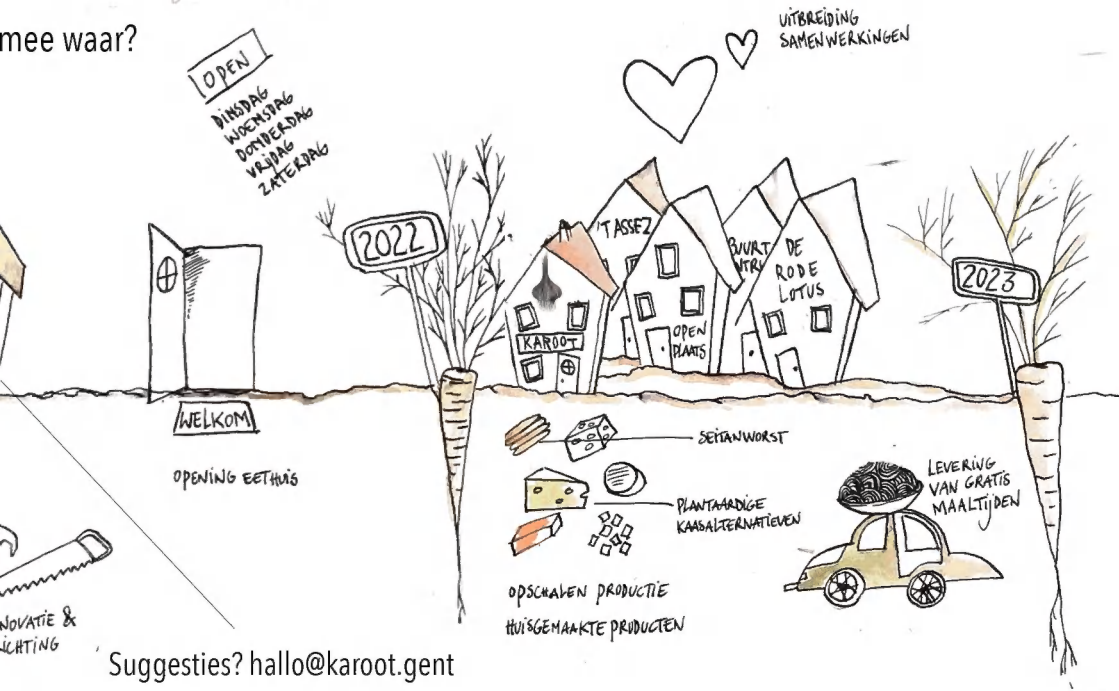 mee waar?
OPEN
DINSDAG
WOENSDAG
DONDERDAG
VRIJDAG
ZATERDAG
UITBREIDING
SAMENWERKINGEN
2022
'T ASSEZ
BUURT
NTRU
DE
RODE
LOTUS
OPEN
PLAATS
KAROOT
2023
WELKOM
OPENING EETHUIS
SEITANWORST
PLANTAARDIGE
KAASALTERNATIEVEN
LEVERING
VAN GRATIS
MAALTIJDEN
OPSCHALEN PRODUCTIE
HUISGEMAAKTE PRODUCTEN
NOVATIE &
ICHTING
Suggesties? hallo@karoot.gent